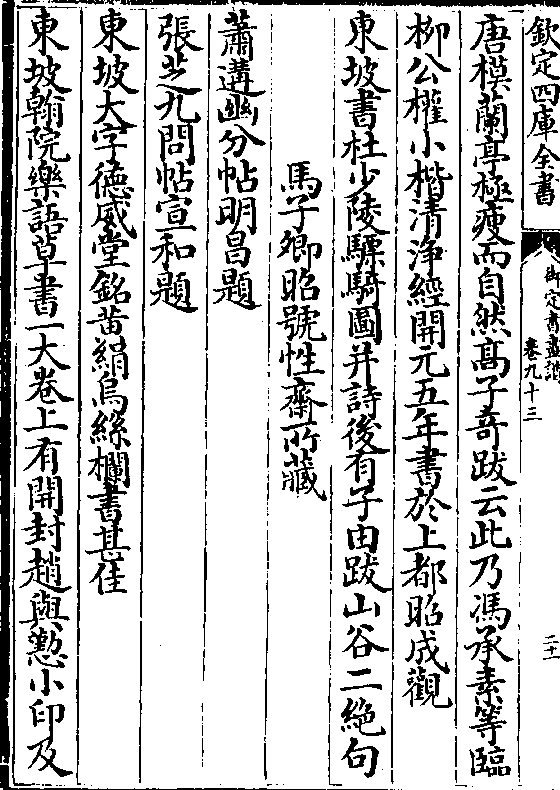 欽定四庫全書
御定書畫譜
卷九十三
二十
唐模蘭亭極瘦而自然高子奇跋云此乃馮承素等臨
柳公權小楷清浄經開元五年書於上都昭成觀
東坡書杜少陵驃騎圖并詩後有子由跋山谷二絶句
馬子卿昭號性齋所藏
蕭遘幽分帖明昌題
張芝九問帖宣和題
東坡大字德威堂銘黄絹烏絲欄書甚佳
東坡翰院樂語草書一大卷上有開封趙與懃小印及